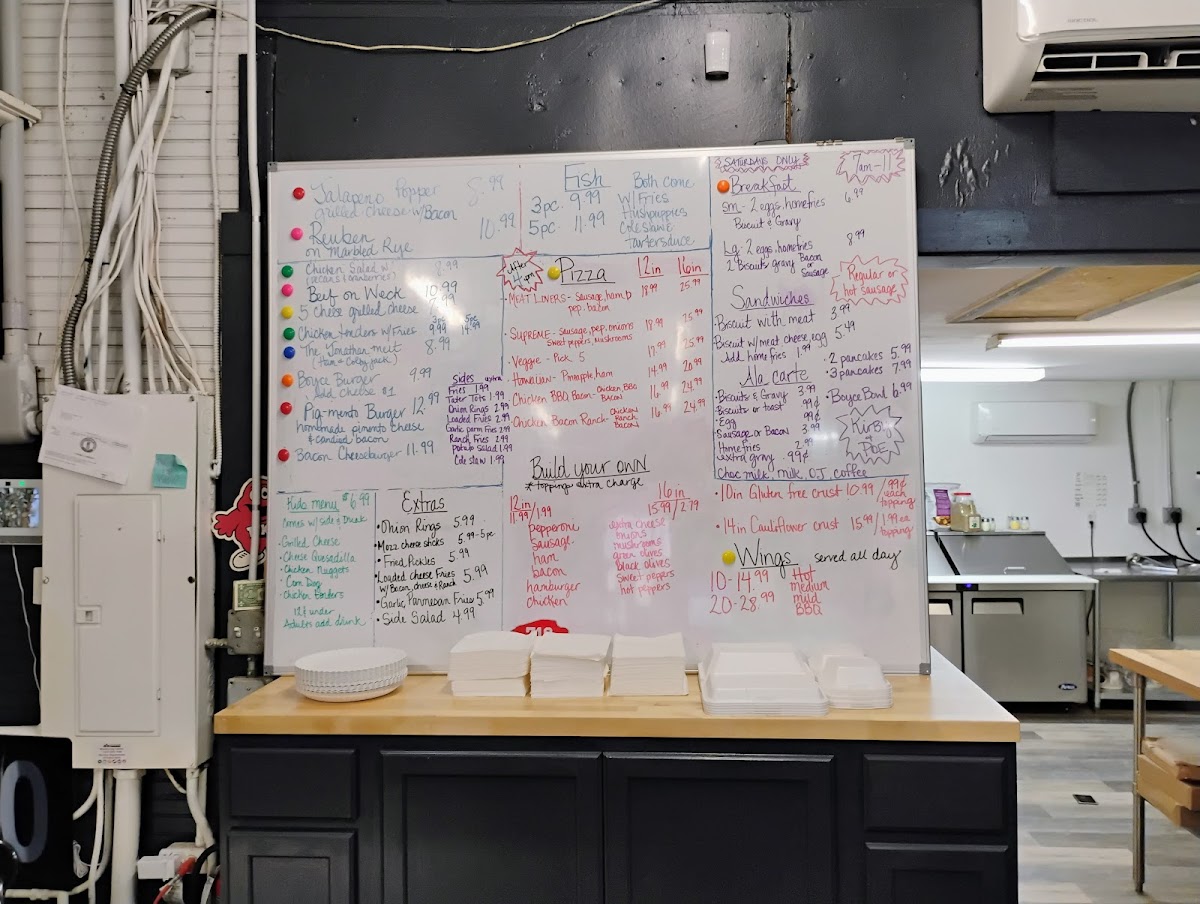 Jalapeno Popper 8.99
grilled cheese w/Bacon
Reuben 10.99
on Marbled Rye
Chicken Salad w/ 8.99
(pecans & cranberries)
Beef on Weck 10.99
5 cheese grilled cheese
3pc 5pc
Chicken tenders w/Fries 9.99
The Jonathan melt 8.99
(Ham & Colby jack)
Boyce Burger 9.99
Add cheese $1
Pig-mento Burger 12.99
homemade pimento cheese
& candied bacon
Bacon Cheeseburger 11.99
Sides
Fries 1.99
Tater Tots 1.99
Onion Rings 2.99
Loaded Fries 2.99
Garlic parm Fries 2.99
Ranch Fries 2.99
Potato Salad 1.99
Cole slaw 1.99
Kids menu $6.99
Comes w/side & Drink
Grilled Cheese
Cheese Quesadilla
Chicken Nuggets
Corn Dog
Chicken Tenders
12 & under
Adults add drink
Extras
Onion Rings 5.99
Mozz cheese sticks 5.99-5pc
Fried Pickles 5.99
Loaded Cheese Fries 5.99
w/Bacon, cheese & Ranch
Garlic Parmesan Fries 5.99
Side Salad 4.99
Fish
3pc. 9.99
5pc. 11.99
Both come
w/ Fries
Hushpuppies
Coleslaw
Tartersauce
After 4pm
Pizza 12in 16in
MEAT LINERS - Sausage, ham, 18.99 25.99
pep. bacon
SUPREME - Sausage, pep, onions 18.99 25.99
Sweet peppers, mushrooms
Veggie - Pick 5 17.99 25.99
Hawaiian - Pineapple, ham 14.99 20.99
Chicken BBQ Bacon - Chicken BBQ Bacon 16.99 24.99
Chicken Bacon Ranch - Chicken Ranch Bacon 16.99 24.99
Build your own
* toppings extra charge
12in
11.99/1.99
pepperoni
sausage
ham
bacon
hamburger
chicken
16in
15.99/2.79
extra cheese
onions
mushrooms
green olives
black olives
sweet peppers
hot peppers
SATURDAYS ONLY
7am-11
Breakfast
sm- 2 eggs, homefries 6.99
Biscuit & Gravy
Lg- 2 eggs, homefries 8.99
2 Biscuits gravy Bacon or Sausage
Regular or
hot sausage
Sandwiches
Biscuit with meat 3.99
Biscuit w/meat cheese, egg 5.49
Add home fries 1.99
2 pancakes 5.99
3 pancakes 7.99
Boyce Bowl 6.99
Ala carte
Biscuits & Gravy 3.99
Biscuits or toast 99¢
Egg 99¢
Sausage or Bacon 3.99
Homefries 2.99
extra gravy .99¢
Kirby
& POE
Choc milk, milk, O.J, coffee
10in Gluten free crust 10.99 /99¢ each topping
14in Cauliflower crust 15.99 /1.99 ea topping
Wings served all day
10-14.99
20-28.99
Hot
Medium
mild
BBQ